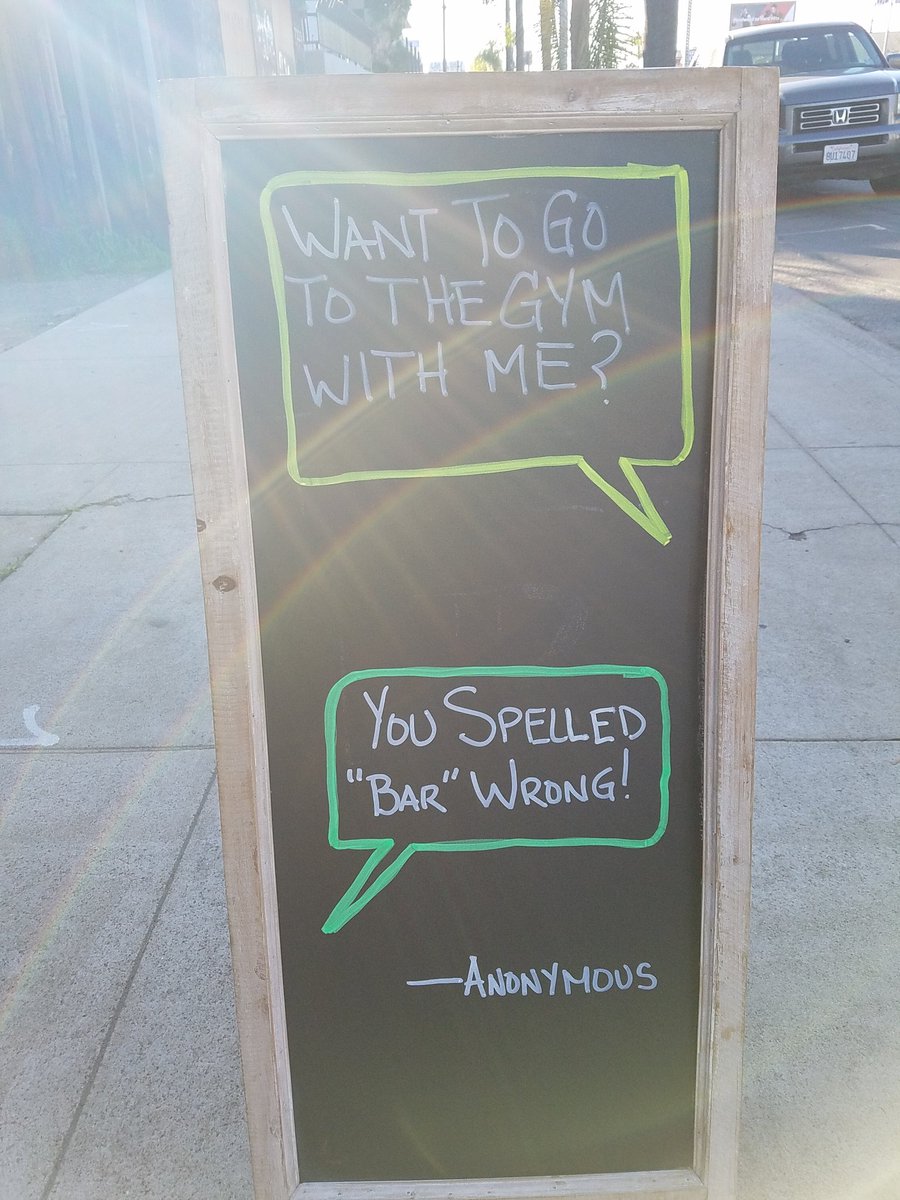 WANT TO GO
TO THE GYM
WITH ME?
YOU SPELLED
"BAR" WRONG!
—ANONYMOUS